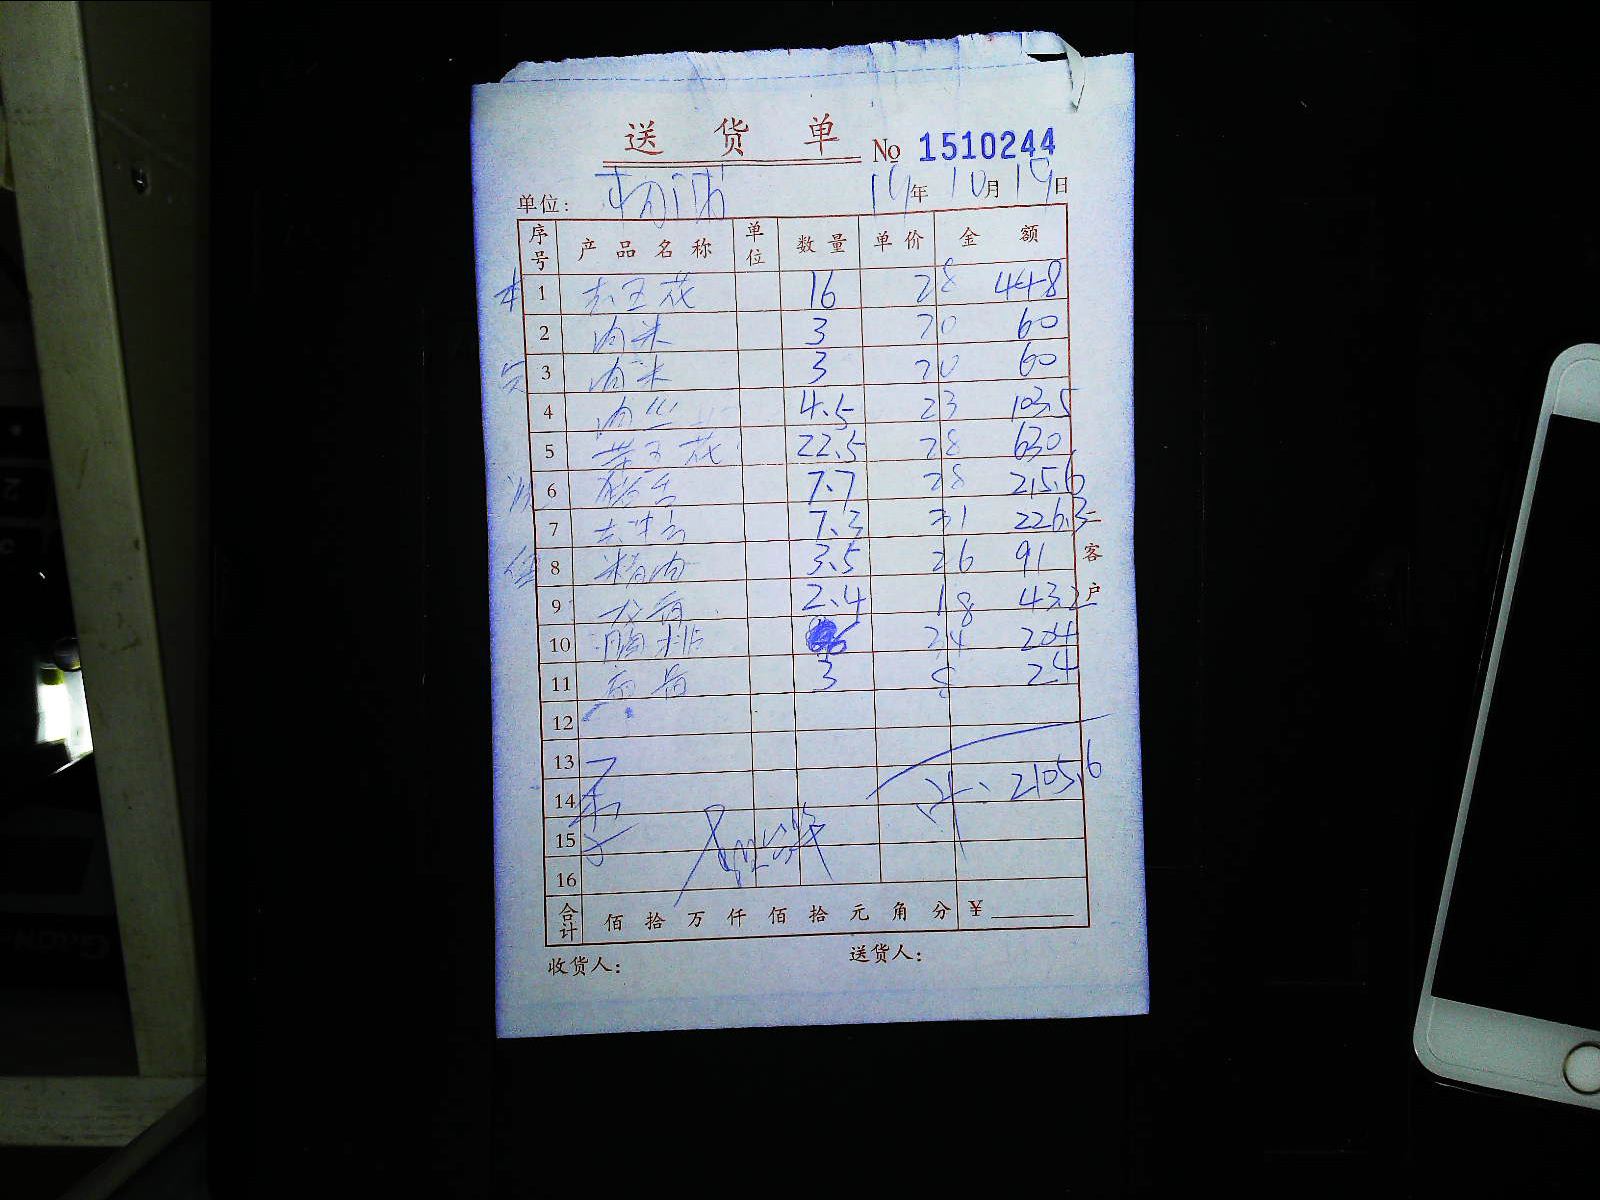 送货单 No 1510244
单位： 年10月19日
序号 产品名称 单位 数量 单价 金额
1 去五花 16 28 448
2 肉米 3 20 60
3 肉米 3 20 60
4 肉丝 4.5 23 103.5
5 带五花 22.5 28 630
6 7.7 28 215.6
7 7.3 31 226.3
8 精肉 3.5 26 91
9 龙骨 2.4 18 43.2
10 排 24 204
11 扇骨 3 8 24
12
13
14 计、2105.6
15
16
合计 佰拾万仟佰拾元角分 ¥
收货人： 送货人：
二客户